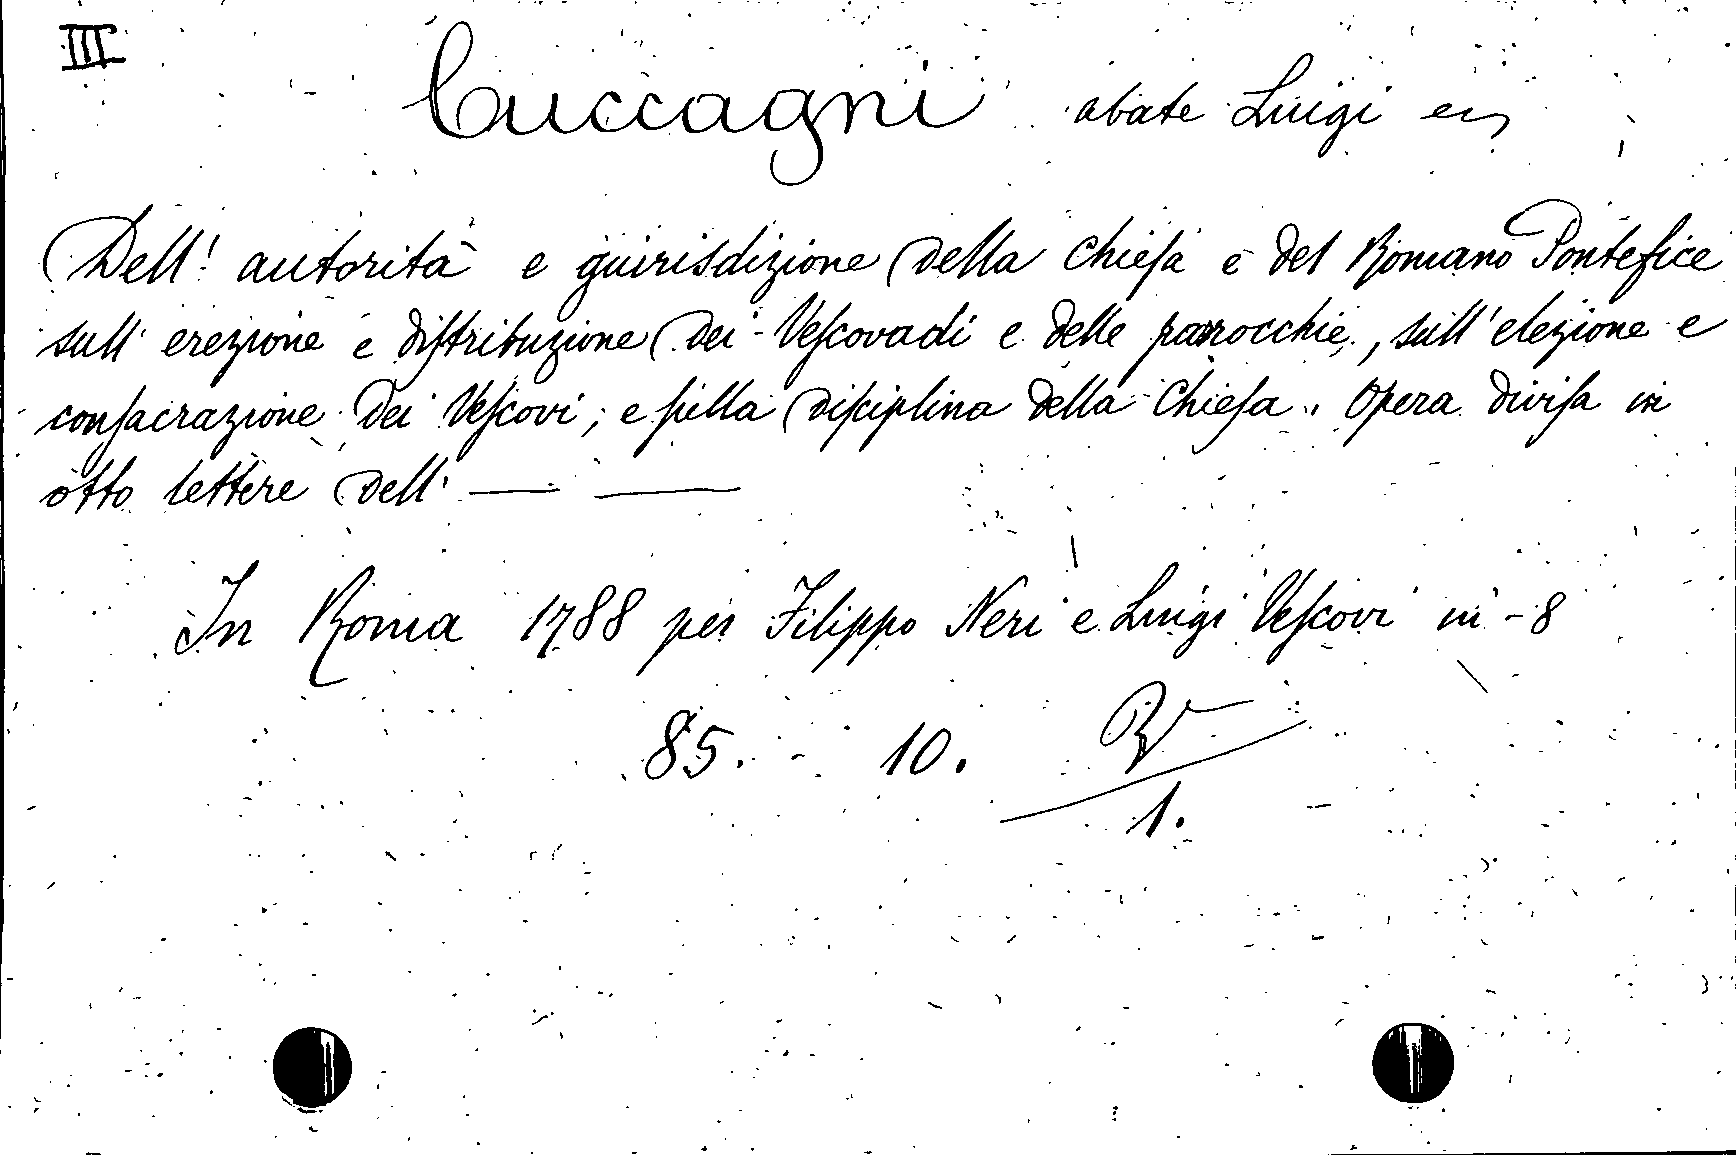 III
Cuccagni abate Luigi
Dell' autorità e giurisdizione della Chiesa e del Romano Pontefice
sull' erezione e distribuzione dei Vescovadi e delle parrocchie, sull' elezione e
consacrazione dei Vescovi; e sulla disciplina della Chiesa. Opera divisa in
otto lettere dell' — —
In Roma 1788 per Filippo Neri e Luigi Vescovi in-8
85. 10.
1.